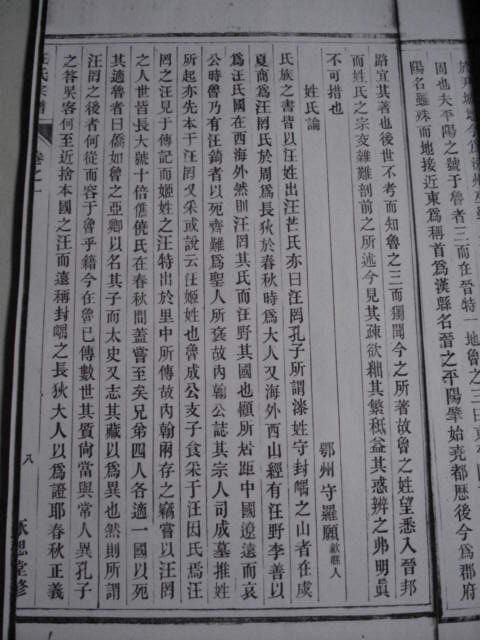 陽名雖殊而地接近東爲稱首爲漢縣名晉之平陽肇始堯都歷後今爲郡府
路宜其著也後世不考而知魯之三而獨聞今之所著故魯之姓望悉入晉邦
而姓氏之宗支雜難剖前之所述今見其疎欲絀其繁秪益其惑辨之弗明寘
不可措也
姓氏論
鄂州守羅願歙縣人
氏族之書皆以汪姓出汪芒氏亦曰汪罔孔子所謂漆姓守封嵎之山者在虞
夏商爲汪罔氏於周爲長狄於春秋時爲大人又海外西山經有汪野李善以
爲汪氏國在西海外然則汪罔其氏而汪野其國也顧所居距中國遼遠而哀
公時魯乃有汪錡者以死齊難爲聖人所褒故内翰公誌其宗人司成墓推姓
所起亦先本于汪罔又采或說云汪姬姓也魯成公支子食采于汪因氏焉汪
罔之汪見于傳記而姬姓之汪特出於里中所傳故内翰兩存之竊嘗以汪罔
之人世皆長大號十倍僬僥氏在春秋間蓋嘗至矣兄弟四人各適一國以死
其適魯者曰僑如魯之亞卿以名其子而太史又志其藏以爲異也然則所謂
汪罔之後者何從而容于魯乎藉今在魯已傳數世其質尚當與常人異孔子
之答吳客何至近捨本國之汪而遠稱封嵎之長狄大人以爲證耶春秋正義
汪氏宗譜
卷之一
八